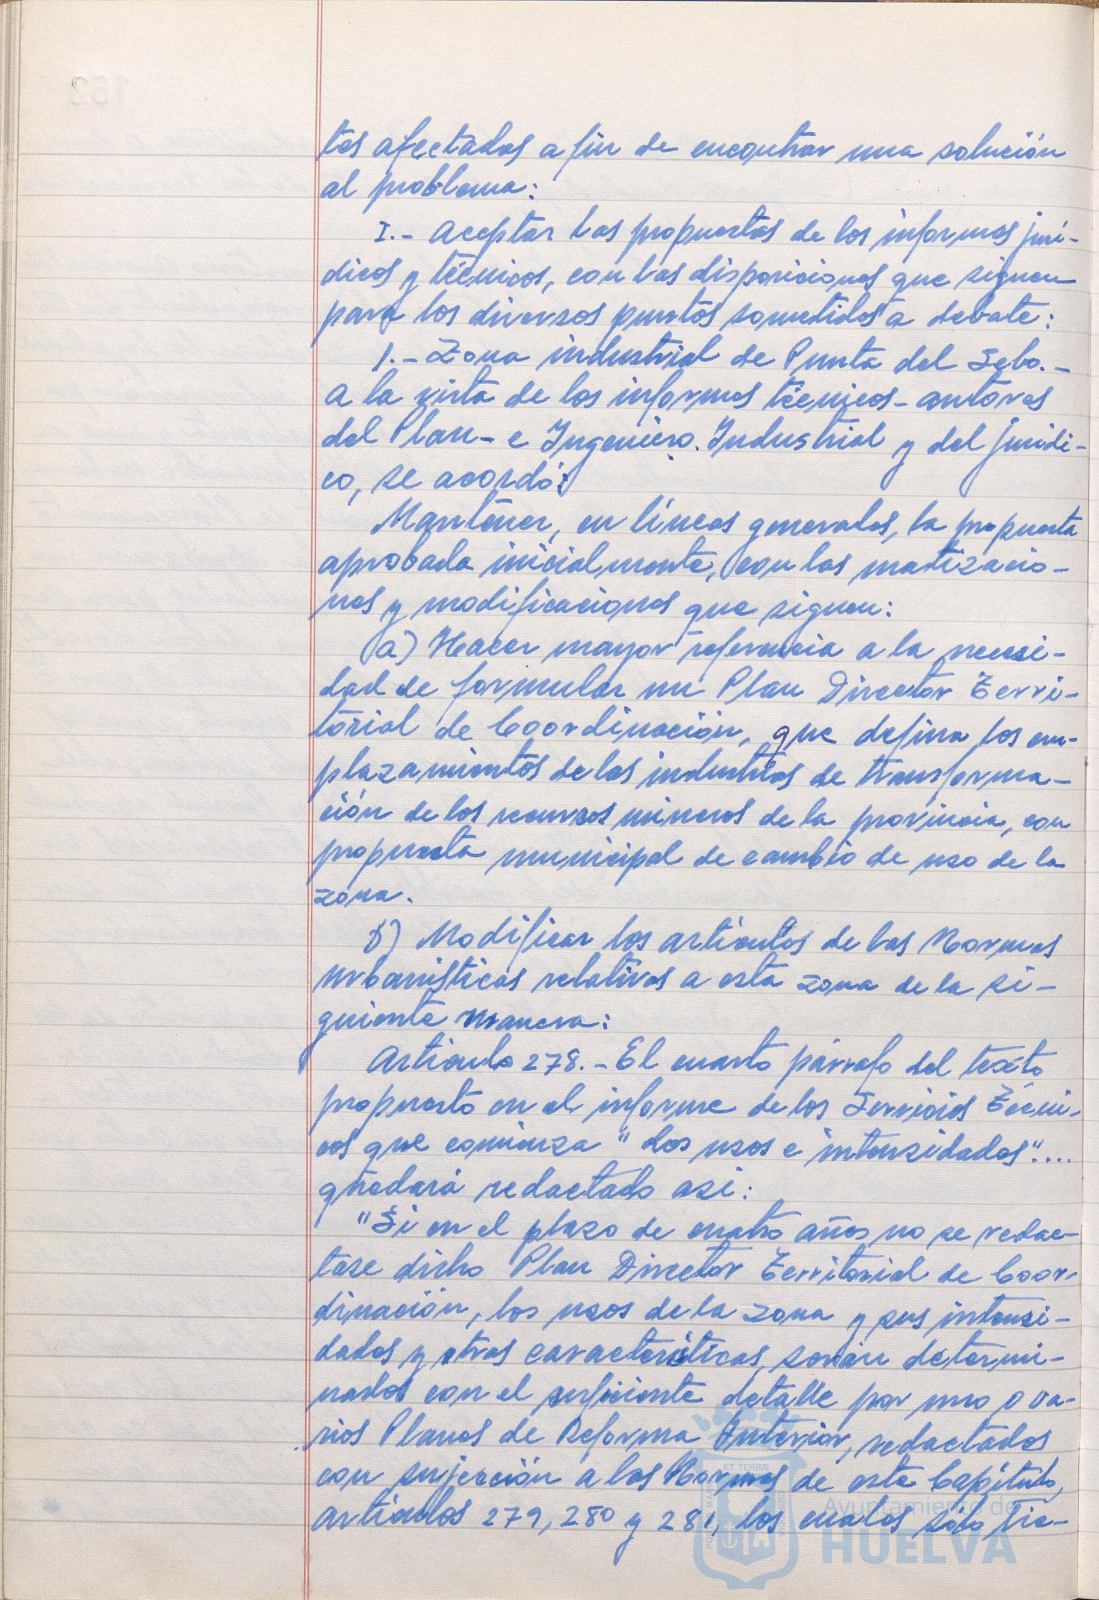 tos afectados a fin de encontrar una solución
al problema:
I.- Aceptar las propuestas de los informes jurí-
dicos y técnicos, con las disposiciones que siguen
para los diversos puntos sometidos a debate:
1.- Zona industrial de Punta del Sebo.-
A la vista de los informes técnicos- autores
del Plan- e Ingeniero Industrial y del jurídi-
co, se acordó:
Mantener, en líneas generales, la propuesta
aprobada inicialmente, con las matizacio-
nes y modificaciones que siguen:
a) Hacer mayor referencia a la necesi-
dad de formular un Plan Director Terri-
torial de Coordinación, que defina los em-
plazamientos de las industrias de transforma-
ción de los recursos mineros de la provincia, con
propuesta municipal de cambio de uso de la
zona.
b) Modificar los artículos de las Normas
Urbanísticas relativos a esta zona de la si-
guiente manera:
Artículo 278.- El cuarto párrafo del texto
propuesto en el informe de los Servicios Técni-
cos que comienza "Los usos e intensidades"....
quedará redactado así:
"Si en el plazo de cuatro años no se redac-
tase dicho Plan Director Territorial de Coor-
dinación, los usos de la zona y sus intensi-
dades y otras características, serán determi-
nados con el suficiente detalle por uno o va-
rios Planes de Reforma Interior, redactados
con sujección a las Normas de este Capítulo,
artículos 279, 280 y 281, los cuales sólo tie-
Ayuntamiento de
HUELVA